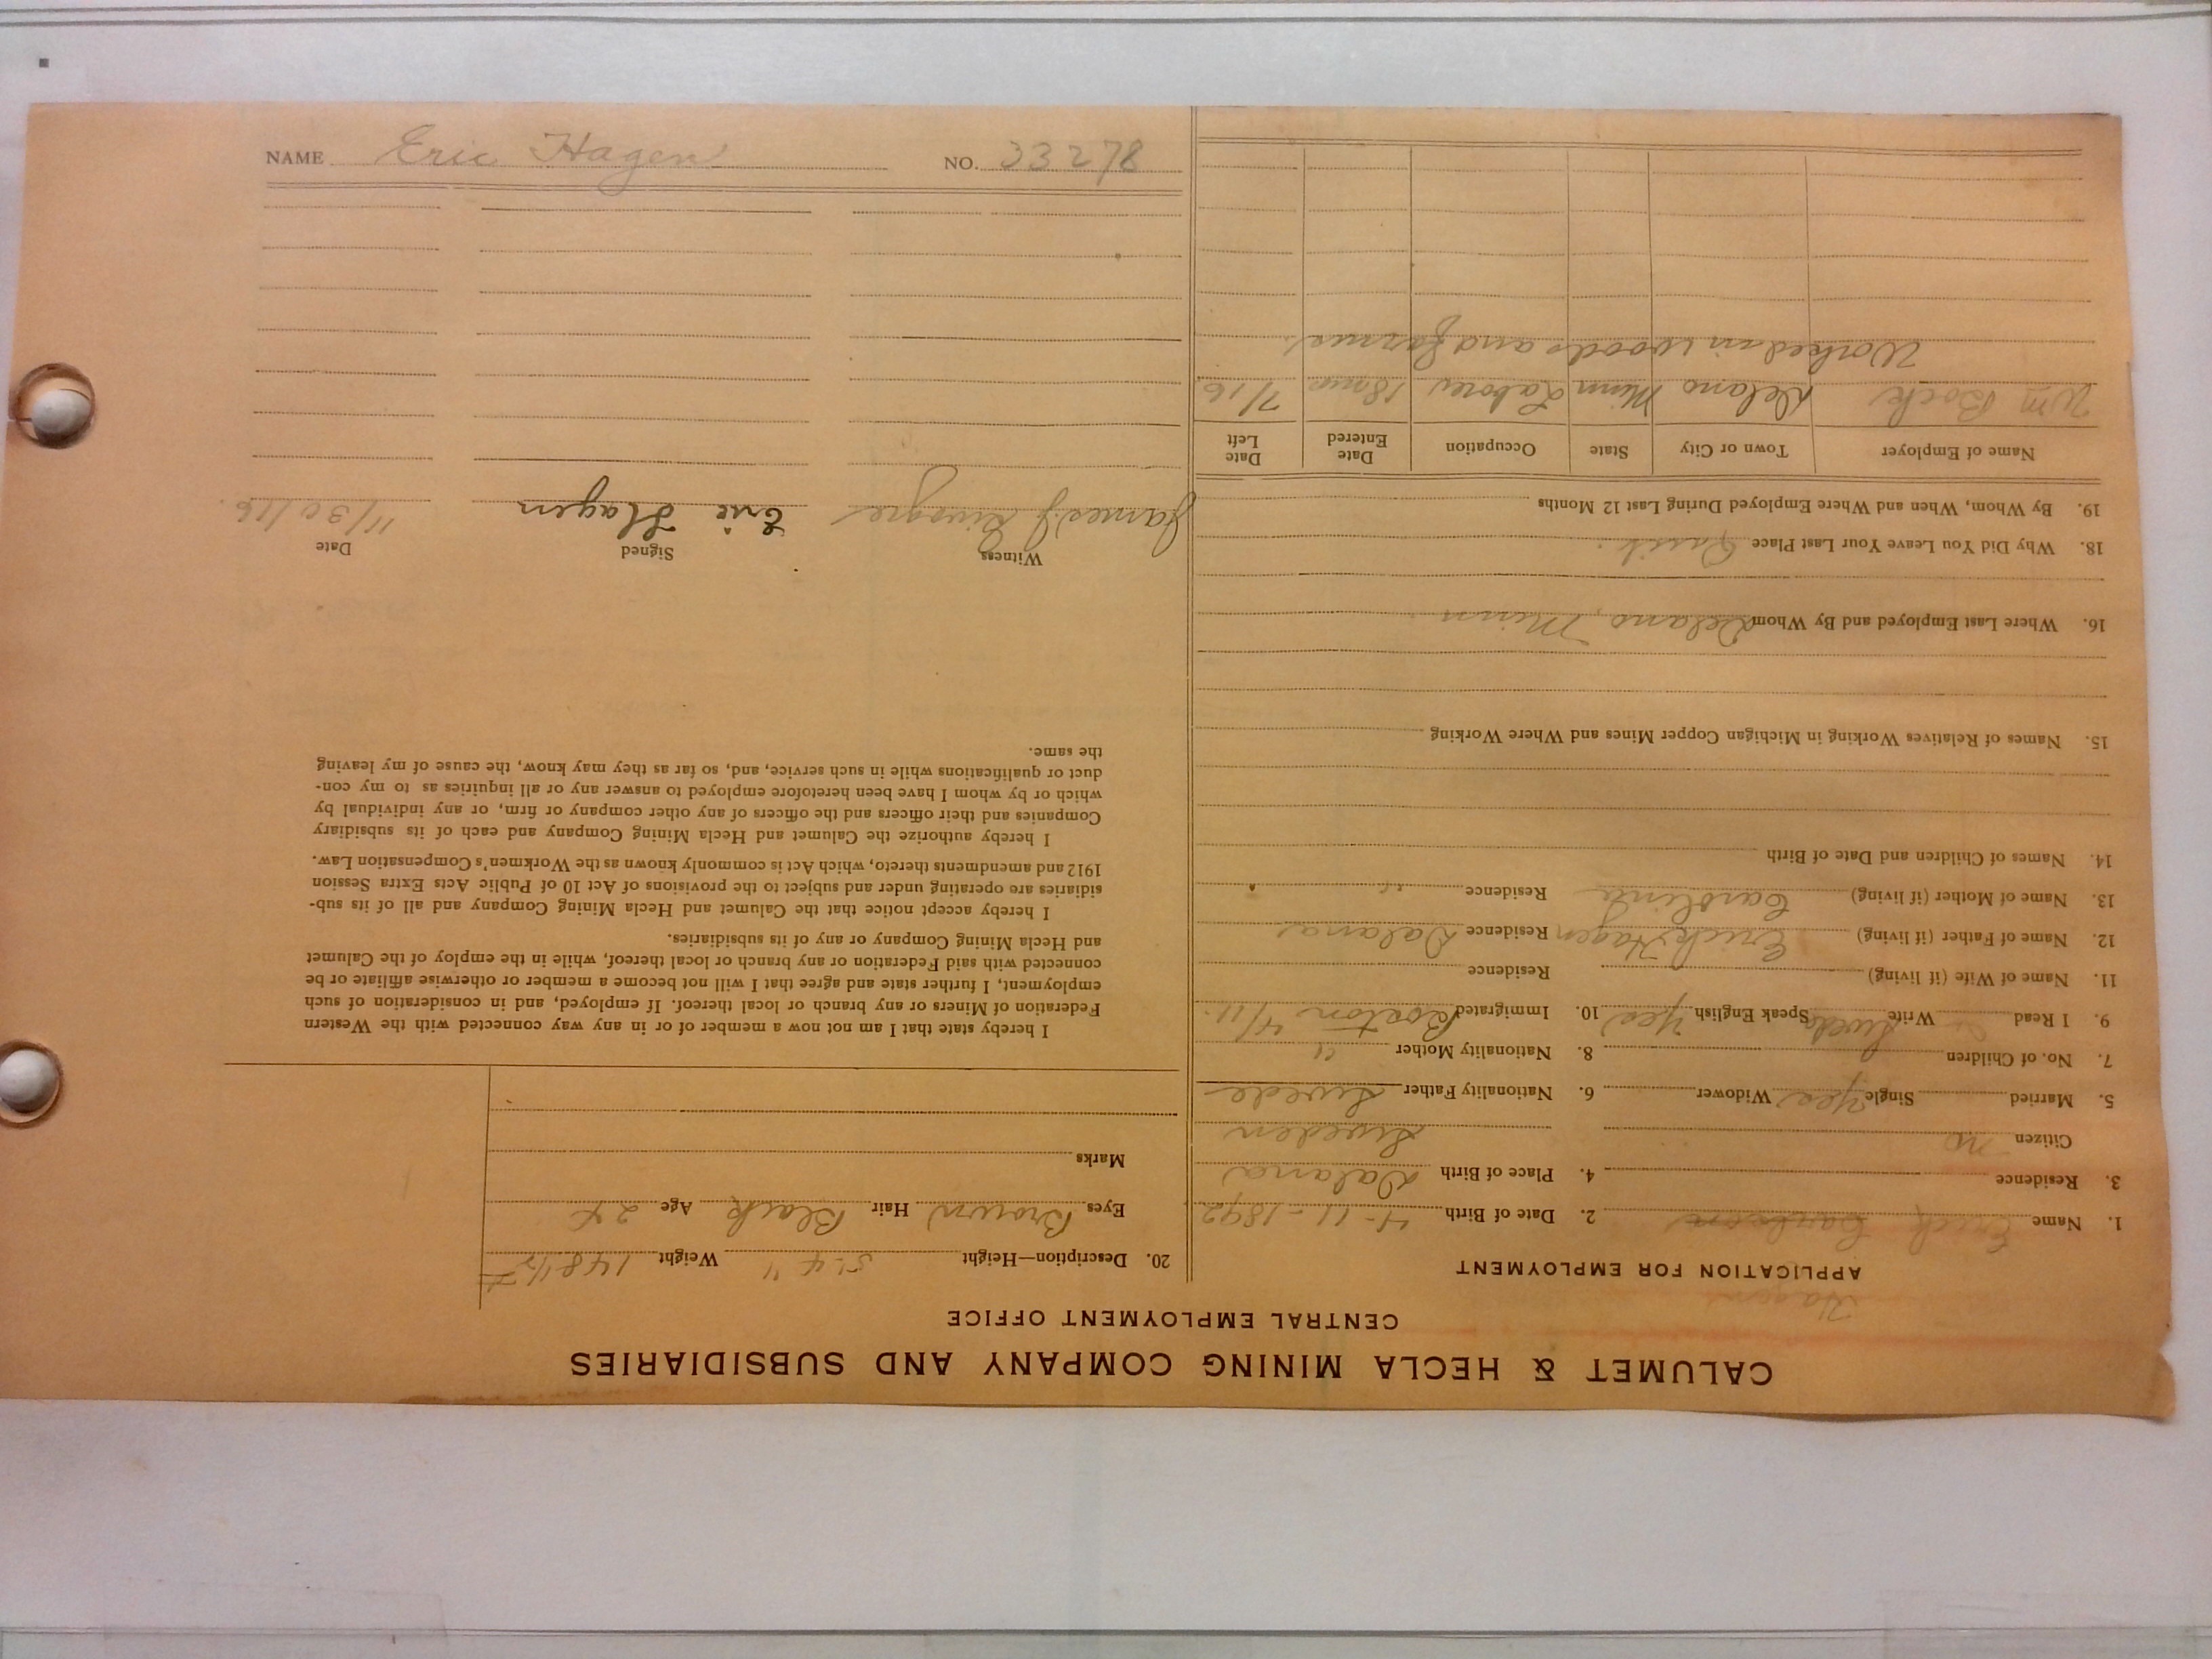 CALUMET & HECLA MINING COMPANY AND SUBSIDIARIES
CENTRAL EMPLOYMENT OFFICE
Hagen
APPLICATION FOR EMPLOYMENT
1. Name Erick 2. Date of Birth 4-11-1892
3. Residence 4. Place of Birth Dalana
Citizen no Sweden
5. Married Single Yes Widower 6. Nationality Father Swede
7. No. of Children 8. Nationality Mother "
9. I Read Write Swede Speak English Yes 10. Immigrated Boston 4/11
11. Name of Wife (if living) Residence
12. Name of Father (if living) Erick Hagen Residence Dalana
13. Name of Mother (if living) Carolina Residence "
14. Names of Children and Date of Birth
15. Names of Relatives Working in Michigan Copper Mines and Where Working
16. Where Last Employed and By Whom Delano, Minn
18. Why Did You Leave Your Last Place Quit.
19. By Whom, When and Where Employed During Last 12 Months
Name of Employer Town or City State Occupation Date Entered Date Left
Wm Bock Delano Minn Laborer 18 mos 7/16
Worked in woods and farms
20. Description—Height 5'-4" Weight 148 1/2
Eyes Brown Hair Black Age 24
Marks
I hereby state that I am not now a member of or in any way connected with the Western
Federation of Miners or any branch or local thereof. If employed, and in consideration of such
employment, I further state and agree that I will not become a member or otherwise affiliate or be
connected with said Federation or any branch or local thereof, while in the employ of the Calumet
and Hecla Mining Company or any of its subsidiaries.
I hereby accept notice that the Calumet and Hecla Mining Company and all of its sub-
sidiaries are operating under and subject to the provisions of Act 10 of Public Acts Extra Session
1912 and amendments thereto, which Act is commonly known as the Workmen's Compensation Law.
I hereby authorize the Calumet and Hecla Mining Company and each of its subsidiary
Companies and their officers and the officers of any other company or firm, or any individual by
which or by whom I have been heretofore employed to answer any or all inquiries as to my con-
duct or qualifications while in such service, and, so far as they may know, the cause of my leaving
the same.
Witness Signed Date
James J Eric Hagen 11/30/16
NAME Eric Hagen NO. 33278